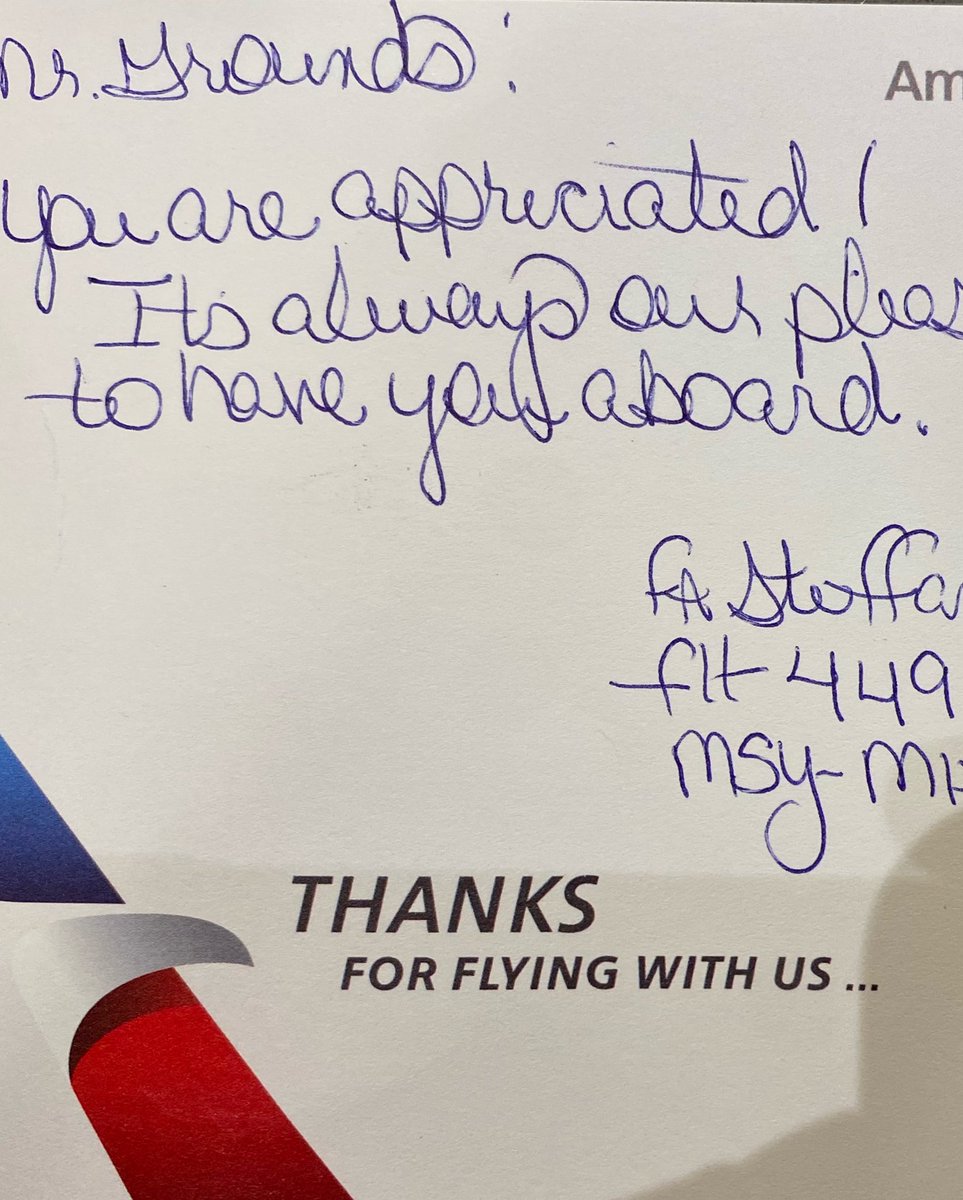 Mr. Grounds:
Am
you are appreciated!
Its always our pleas
to have you aboard.
FA Stoffa
flt 449
MSY-MI
THANKS
FOR FLYING WITH US ...